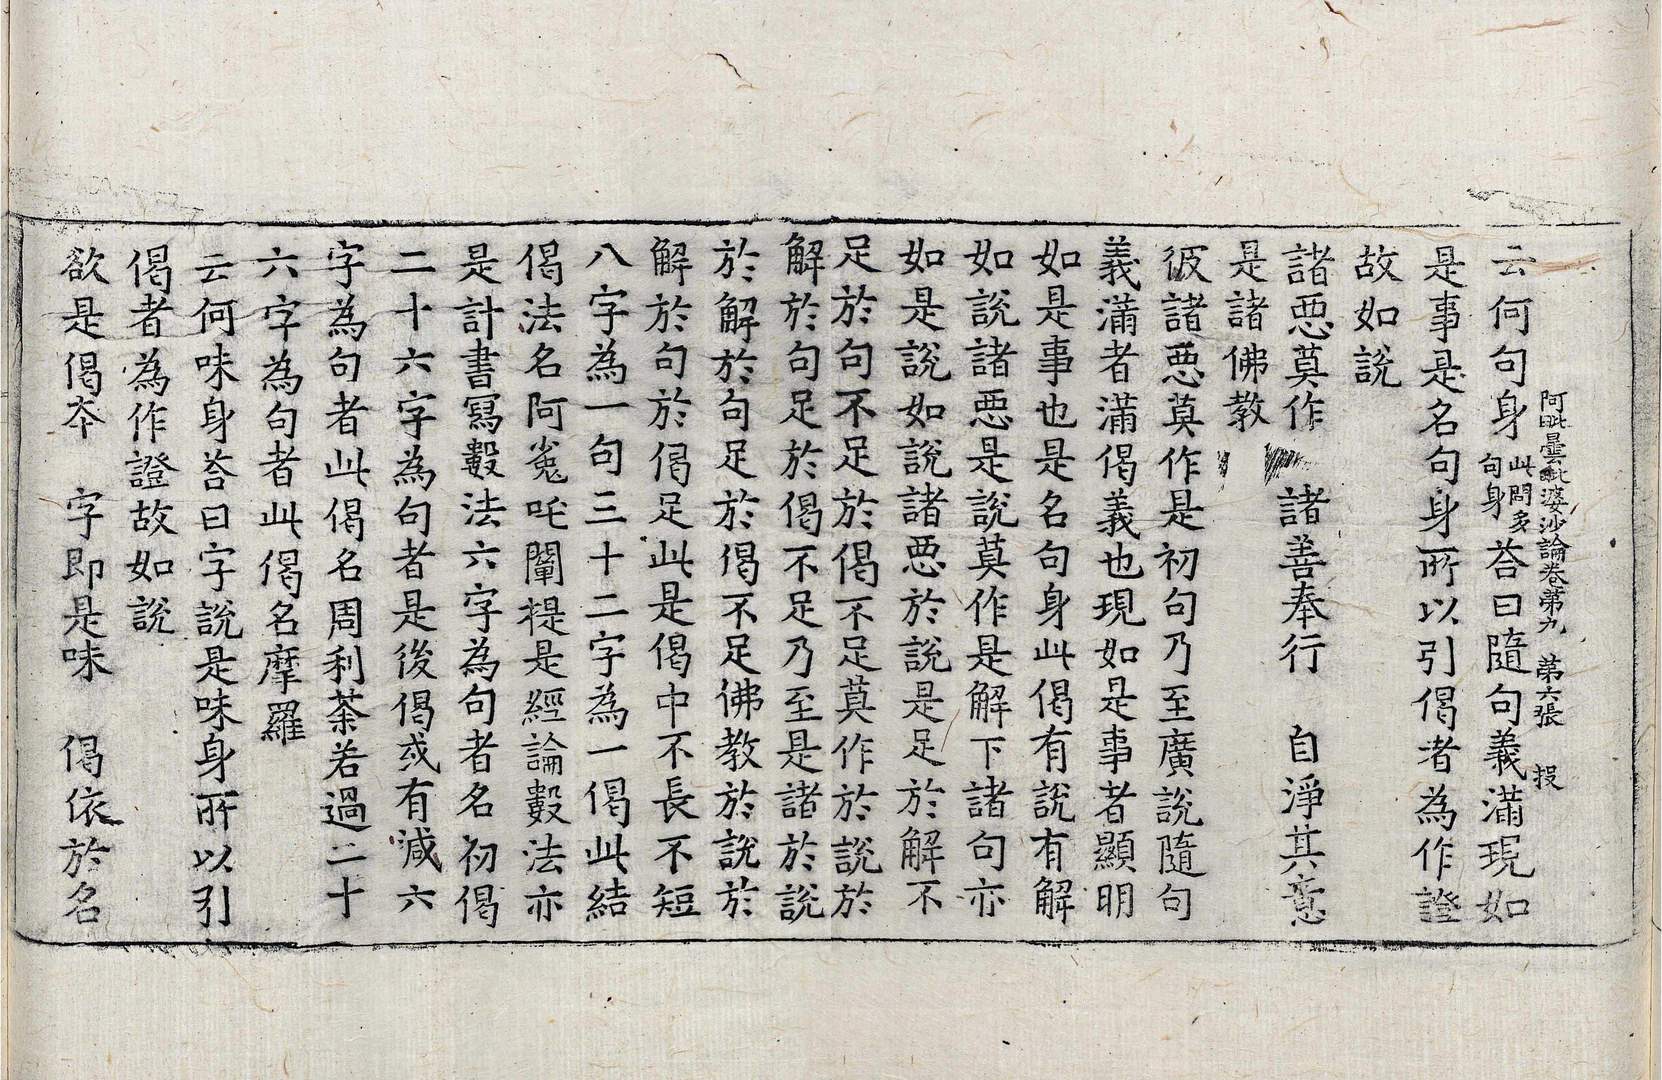 阿毗曇毗婆沙論卷第九　第六張　投
云何句身此問多句身荅曰隨句義滿現如
是事是名句身所以引偈者為作證
故如說
諸惡莫作　諸善奉行　自淨其意
是諸佛教
彼諸惡莫作是初句乃至廣說隨句
義滿者滿偈義也現如是事者顯明
如是事也是名句身此偈有說有解
如說諸惡是說莫作是解下諸句亦
如是說如說諸惡於說是足於解不
足於句不足於偈不足莫作於說於
解於句足於偈不足乃至是諸於說
於解於句足於偈不足佛教於說於
解於句於偈足此是偈中不長不短
八字為一句三十二字為一偈此結
偈法名阿㝹吒闡提是經論數法亦
是計書寫數法六字為句者名初偈
二十六字為句者是後偈或有減六
字為句者此偈名周利荼若過二十
六字為句者此偈名摩羅
云何味身荅曰字說是味身所以引
偈者為作證故如說
欲是偈夲　字即是味　偈依於名